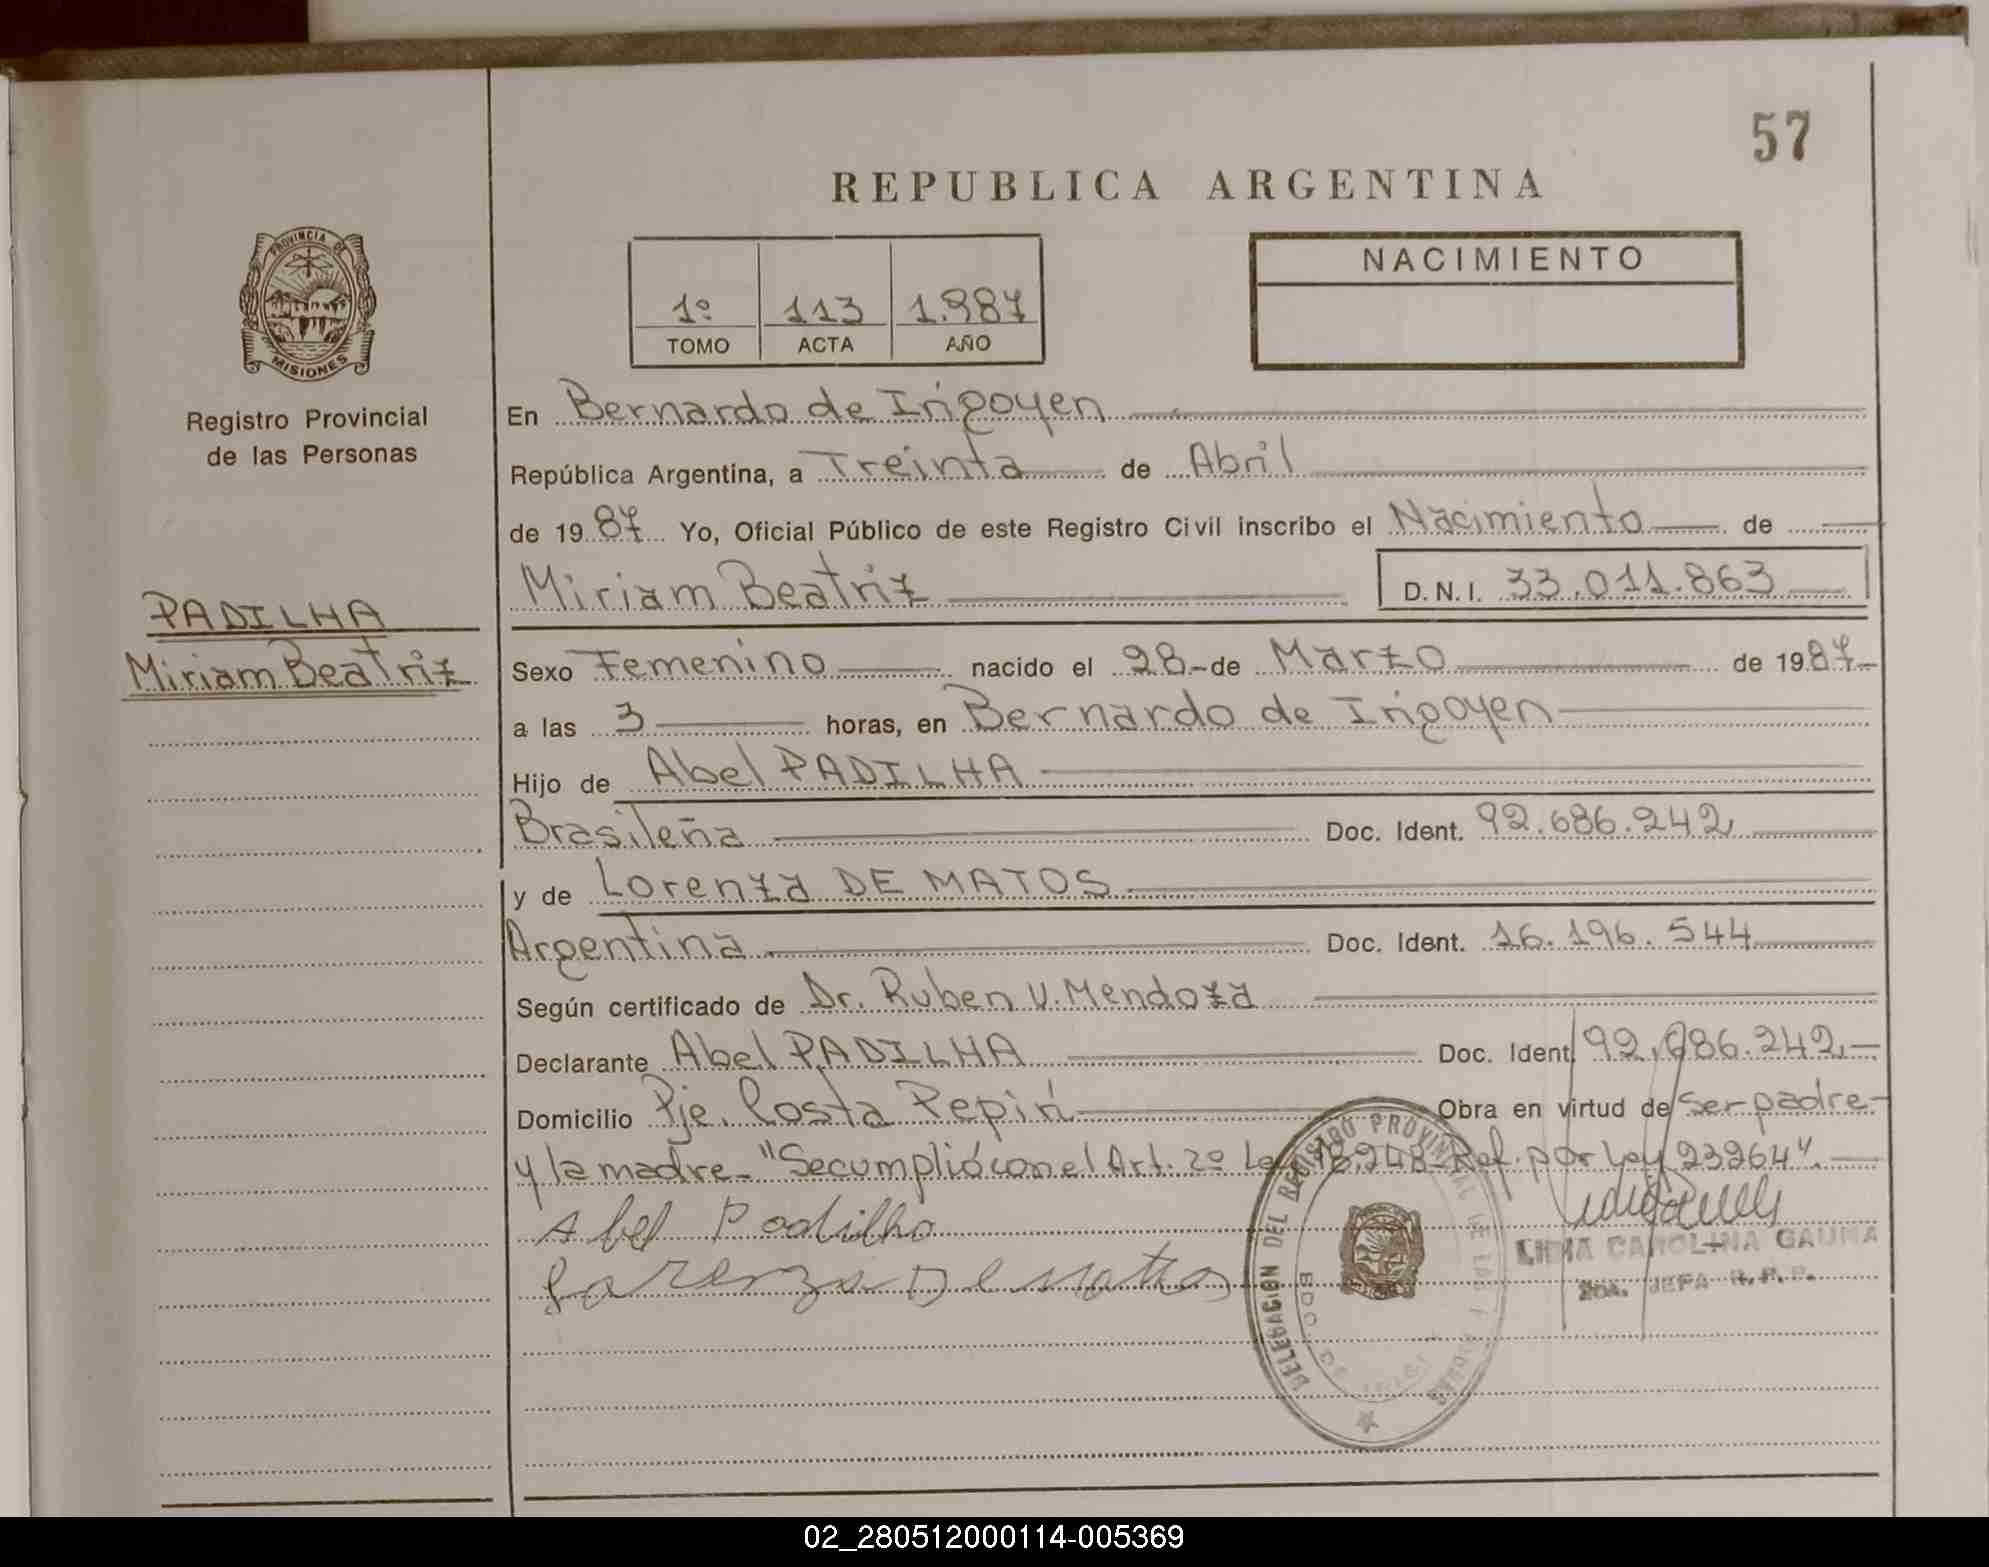 57
REPUBLICA ARGENTINA
PROVINCIA DE
MISIONES
Registro Provincial
de las Personas
1º 113 1.987
TOMO ACTA AÑO
NACIMIENTO
PADILHA
Miriam Beatriz
En Bernardo de Irigoyen
República Argentina, a Treinta de Abril
de 1987 Yo, Oficial Público de este Registro Civil inscribo el Nacimiento de
Miriam Beatriz D.N.I. 33.011.863
Sexo Femenino nacido el 28-de Marzo de 1987-
a las 3 horas, en Bernardo de Irigoyen
Hijo de Abel PADILHA
Brasileña Doc. Ident. 92.686.242,
y de Lorenza DE MATOS
Argentina Doc. Ident. 16.196.544
Según certificado de Dr. Ruben V. Mendoza
Declarante Abel PADILHA Doc. Ident. 92.686.242,-
Domicilio Pje. Costa Pepirí Obra en virtud de ser padre-
y la madre- "Se cumplió con el Art. 2º Ley 18.248-Ref. por Ley 23264".
Abel Padilha
Lorenza De Matos
DELEGACION DEL REGISTRO PROVINCIAL DE LAS PERSONAS
BDO. DE IRIGOYEN
CAROLINA GAUNA
2da. JEFA R.P.P.
02_280512000114-005369